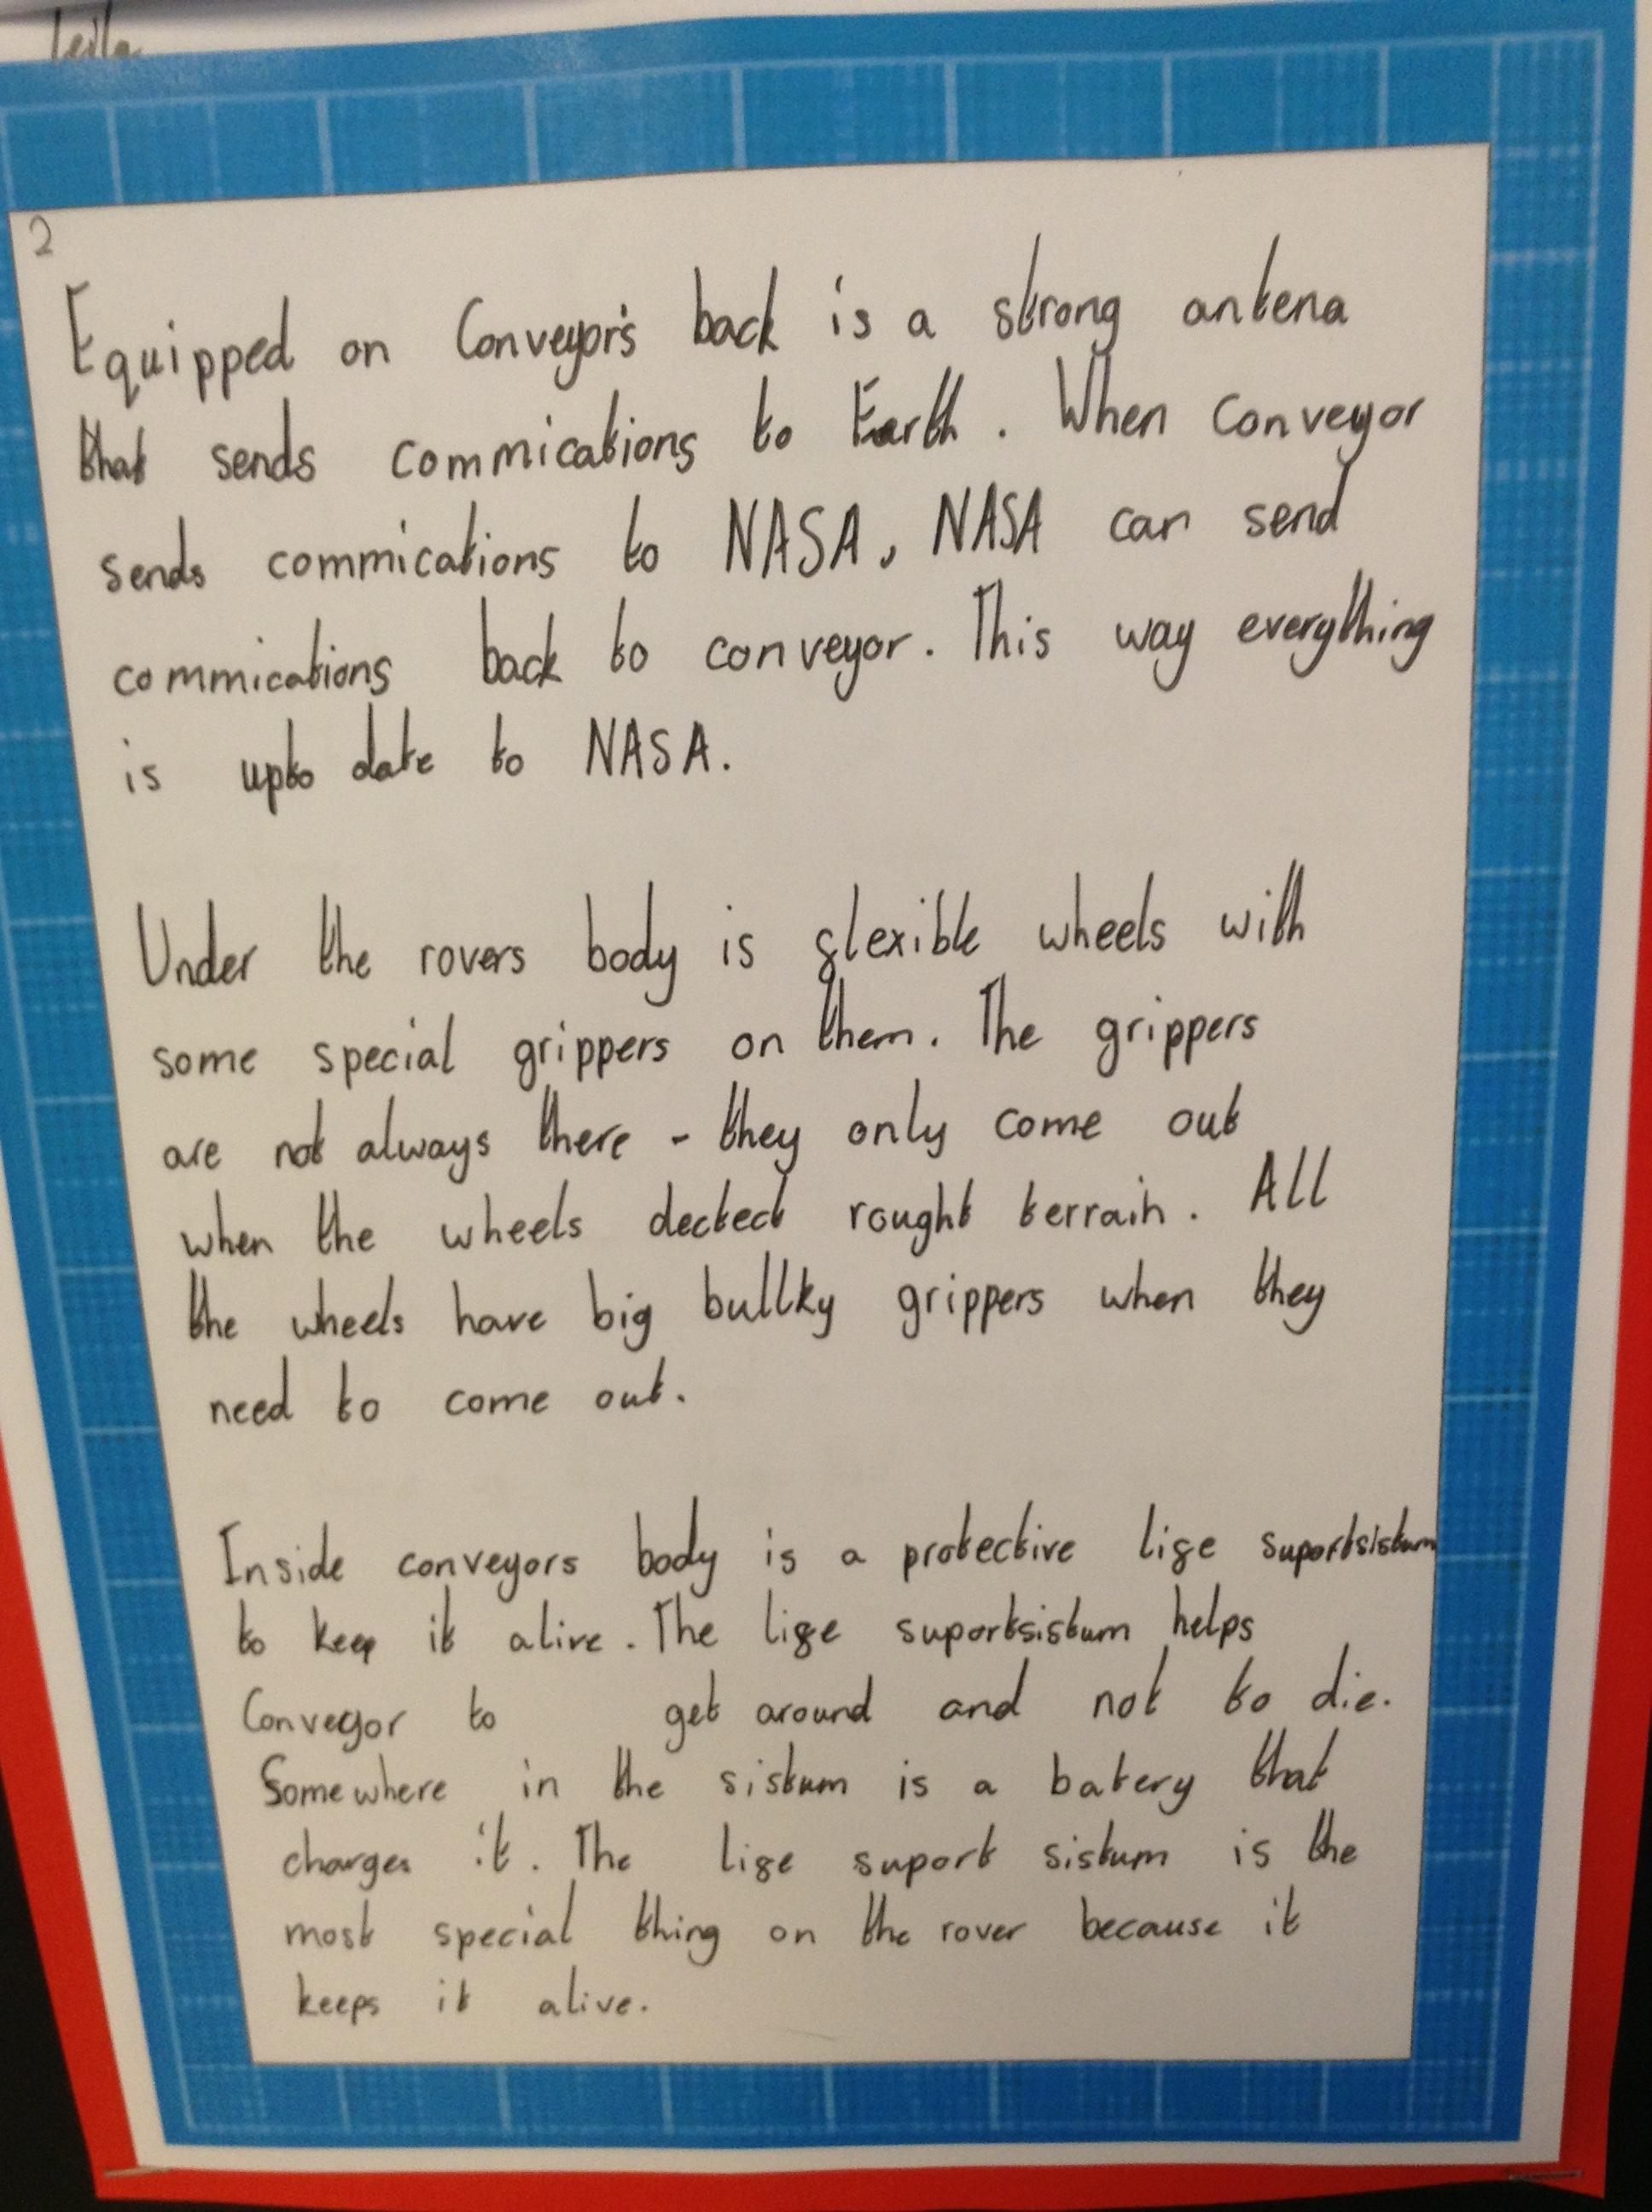 Leila
2
Equipped on Conveyor's back is a strong antena
that sends commications to Earth. When Conveyor
sends commications to NASA, NASA can send
commications back to conveyor. This way everything
is upto date to NASA.
Under the rovers body is flexible wheels with
some special grippers on them. The grippers
are not always there - they only come out
when the wheels dectect rought terrain. All
the wheels have big bullky grippers when they
need to come out.
Inside conveyors body is a protective life suportsistum
to keep it alive. The life suportsistum helps
Conveyor to get around and not to die.
Somewhere in the sistum is a batery that
charges it. The life suport sistum is the
most special thing on the rover because it
keeps it alive.